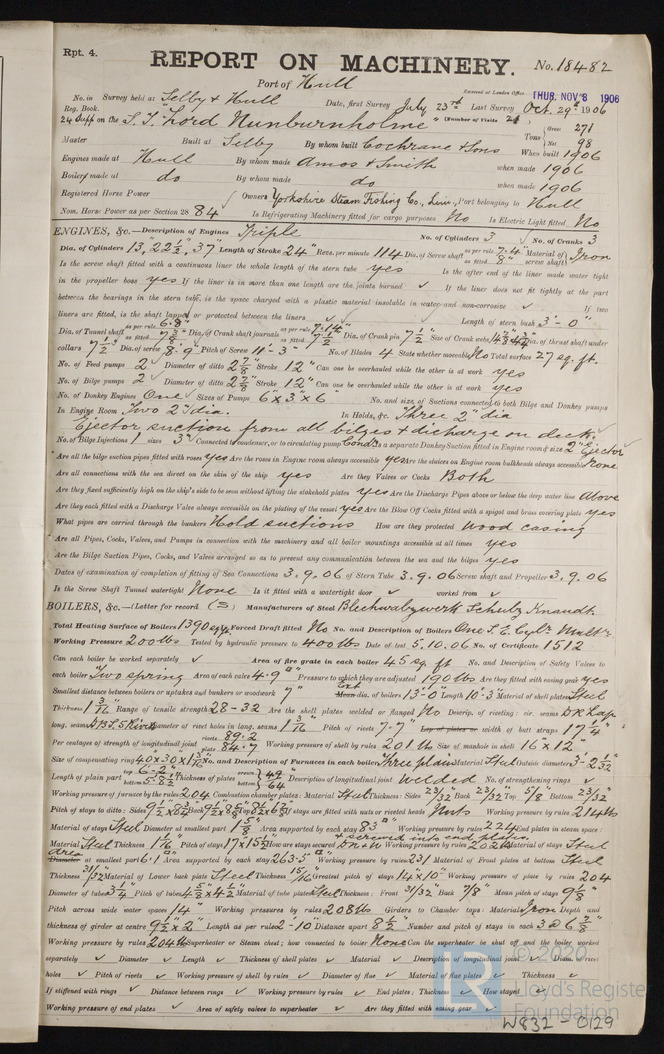 Rpt. 4.
REPORT ON MACHINERY.
No. 18482
Port of Hull
Received at London Office THUR. NOV. 8 1906
No. in Survey held at Selby & Hull Date, first Survey July 23rd Last Survey Oct. 29th 1906
Reg. Book. (Number of Visits 21)
24 Supp on the S.T. "Lord Nunburnholme" Tons Gross 271 Net 98
Master Built at Selby By whom built Cochrane & Sons When built 1906
Engines made at Hull By whom made Amos & Smith when made 1906
Boilers made at do By whom made do when made 1906
Registered Horse Power Owners Yorkshire Steam Fishing Co., Lim. Port belonging to Hull
Nom. Horse Power as per Section 28 84 Is Refrigerating Machinery fitted for cargo purposes No Is Electric Light fitted No
ENGINES, &c.—Description of Engines Triple No. of Cylinders 3 No. of Cranks 3
Dia. of Cylinders 13", 22½", 37" Length of Stroke 24" Revs. per minute 114 Dia. of Screw shaft as per rule 7.4" as fitted 8" Material of screw shaft Iron
Is the screw shaft fitted with a continuous liner the whole length of the stern tube yes Is the after end of the liner made water tight
in the propeller boss yes If the liner is in more than one length are the joints burned ✓ If the liner does not fit tightly at the part
between the bearings in the stern tube, is the space charged with a plastic material insoluble in water and non-corrosive ✓ If two
liners are fitted, is the shaft lapped or protected between the liners ✓ Length of stern bush 3'-0"
Dia. of Tunnel shaft as per rule 6.8" as fitted 7⅜" Dia. of Crank shaft journals as per rule 7.14" as fitted 7½" Dia. of Crank pin 7½" Size of Crank webs Dia. of thrust shaft under
collars 7½" Dia. of screw 8'-9" Pitch of Screw 11'-3" No. of Blades 4 State whether moveable No Total surface 27 sq. ft.
No. of Feed pumps 2 Diameter of ditto 2⅞" Stroke 12" Can one be overhauled while the other is at work yes
No. of Bilge pumps 2 Diameter of ditto 2⅞" Stroke 12" Can one be overhauled while the other is at work yes
No. of Donkey Engines One Sizes of Pumps 6" x 3" x 6" No. and size of Suctions connected to both Bilge and Donkey pumps
In Engine Room Two 2" dia. In Holds, &c. Three 2" dia
Ejector suction from all bilges & discharge on deck.
No. of Bilge Injections 1 sizes 3" Connected to condenser, or to circulating pump Condr. Is a separate Donkey Suction fitted in Engine room & size 2" Ejector
Are all the bilge suction pipes fitted with roses yes Are the roses in Engine room always accessible yes Are the sluices on Engine room bulkheads always accessible None
Are all connections with the sea direct on the skin of the ship yes Are they Valves or Cocks Both
Are they fixed sufficiently high on the ship's side to be seen without lifting the stokehold plates yes Are the Discharge Pipes above or below the deep water line Above
Are they each fitted with a Discharge Valve always accessible on the plating of the vessel yes Are the Blow Off Cocks fitted with a spigot and brass covering plate yes
What pipes are carried through the bunkers Hold suctions How are they protected Wood casing
Are all Pipes, Cocks, Valves, and Pumps in connection with the machinery and all boiler mountings accessible at all times yes
Are the Bilge Suction Pipes, Cocks, and Valves arranged so as to prevent any communication between the sea and the bilges yes
Dates of examination of completion of fitting of Sea Connections 3.9.06 of Stern Tube 3.9.06 Screw shaft and Propeller 3.9.06
Is the Screw Shaft Tunnel watertight None Is it fitted with a watertight door ✓ worked from ✓
BOILERS, &c.—(Letter for record (S)) Manufacturers of Steel Schulz Knaudt
Total Heating Surface of Boilers 1390 sq. ft. Forced Draft fitted No No. and Description of Boilers One S.E. Cyl. Mult.
Working Pressure 200 lbs Tested by hydraulic pressure to 400 lbs Date of test 5.10.06 No. of Certificate 1512
Can each boiler be worked separately ✓ Area of fire grate in each boiler 45 sq. ft No. and Description of Safety Valves to
each boiler Two spring Area of each valve 4.9" Pressure to which they are adjusted 190 lbs Are they fitted with easing gear yes
Smallest distance between boilers or uptakes and bunkers or woodwork 7" Ext. dia. of boilers 13'-0" Length 10'-3" Material of shell plates Steel
Thickness 1 3/16 Range of tensile strength 28-32 Are the shell plates welded or flanged No Descrip. of riveting: cir. seams DR Lap
long. seams Diameter of rivet holes in long. seams 1 3/16 Pitch of rivets 7.7" Lap of plates or width of butt straps 17¼"
Per centages of strength of longitudinal joint rivets 89.2 plate 84.7 Working pressure of shell by rules 201 lbs Size of manhole in shell 16" x 12"
Size of compensating ring No. and Description of Furnaces in each boiler Three plain Material Steel Outside diameter
Length of plain part top 6'-2" bottom Thickness of plates crown 49/64 bottom Description of longitudinal joint welded No. of strengthening rings ✓
Working pressure of furnace by the rules 204 Combustion chamber plates: Material Steel Thickness: Sides 23/32 Back 23/32 Top 5/8 Bottom 23/32
Pitch of stays to ditto: Sides Back Top If stays are fitted with nuts or riveted heads Nuts Working pressure by rules 214 lbs
Material of stays Steel Diameter at smallest part 1⅝" Area supported by each stay 83" Working pressure by rules 224 End plates in steam space:
Material Steel Thickness 1 1/16 Pitch of stays 17 x 15½ How are stays secured Working pressure by rules 202 lbs Material of stays Steel
Area at smallest part 6.1 Area supported by each stay 263.5 Working pressure by rules 231 Material of Front plates at bottom Steel
Thickness 31/32 Material of Lower back plate Steel Thickness 15/16 Greatest pitch of stays 14 x 10" Working pressure of plate by rules 204
Diameter of tubes 3¼ Pitch of tubes 4⅝ x 4½ Material of tube plates Steel Thickness: Front 31/32 Back 7/8" Mean pitch of stays 9⅛
Pitch across wide water spaces 14" Working pressures by rules 208 lbs Girders to Chamber tops: Material Iron Depth and
thickness of girder at centre 9½ x 2" Length as per rule 2'-10" Distance apart 8½ Number and pitch of stays in each 3 @ 6⅞"
Working pressure by rules 204 lb Superheater or Steam chest; how connected to boiler None Can the superheater be shut off and the boiler worked
separately ✓ Diameter ✓ Length ✓ Thickness of shell plates ✓ Material ✓ Description of longitudinal joint ✓ Diam. of rivet
holes ✓ Pitch of rivets ✓ Working pressure of shell by rules ✓ Diameter of flue ✓ Material of flue plates ✓ Thickness ✓
If stiffened with rings ✓ Distance between rings ✓ Working pressure by rules ✓ End plates: Thickness ✓ How stayed ✓
Working pressure of end plates ✓ Area of safety valves to superheater ✓ Are they fitted with easing gear ✓
© 2020
Lloyd's Register
Foundation
W832-0129